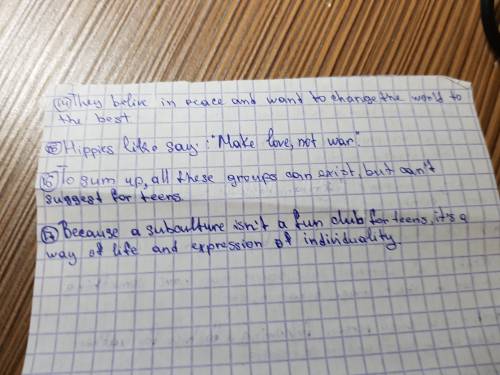 (14) They belive in peace and want to change the world to
the best
(15) Hippies like say: "Make love, not war".
(16) To sum up, all these groups can exist, but can't
suggest for teens.
(17) Because a subculture isn't a fun club for teens, it's a
way of life and expression of individuality.